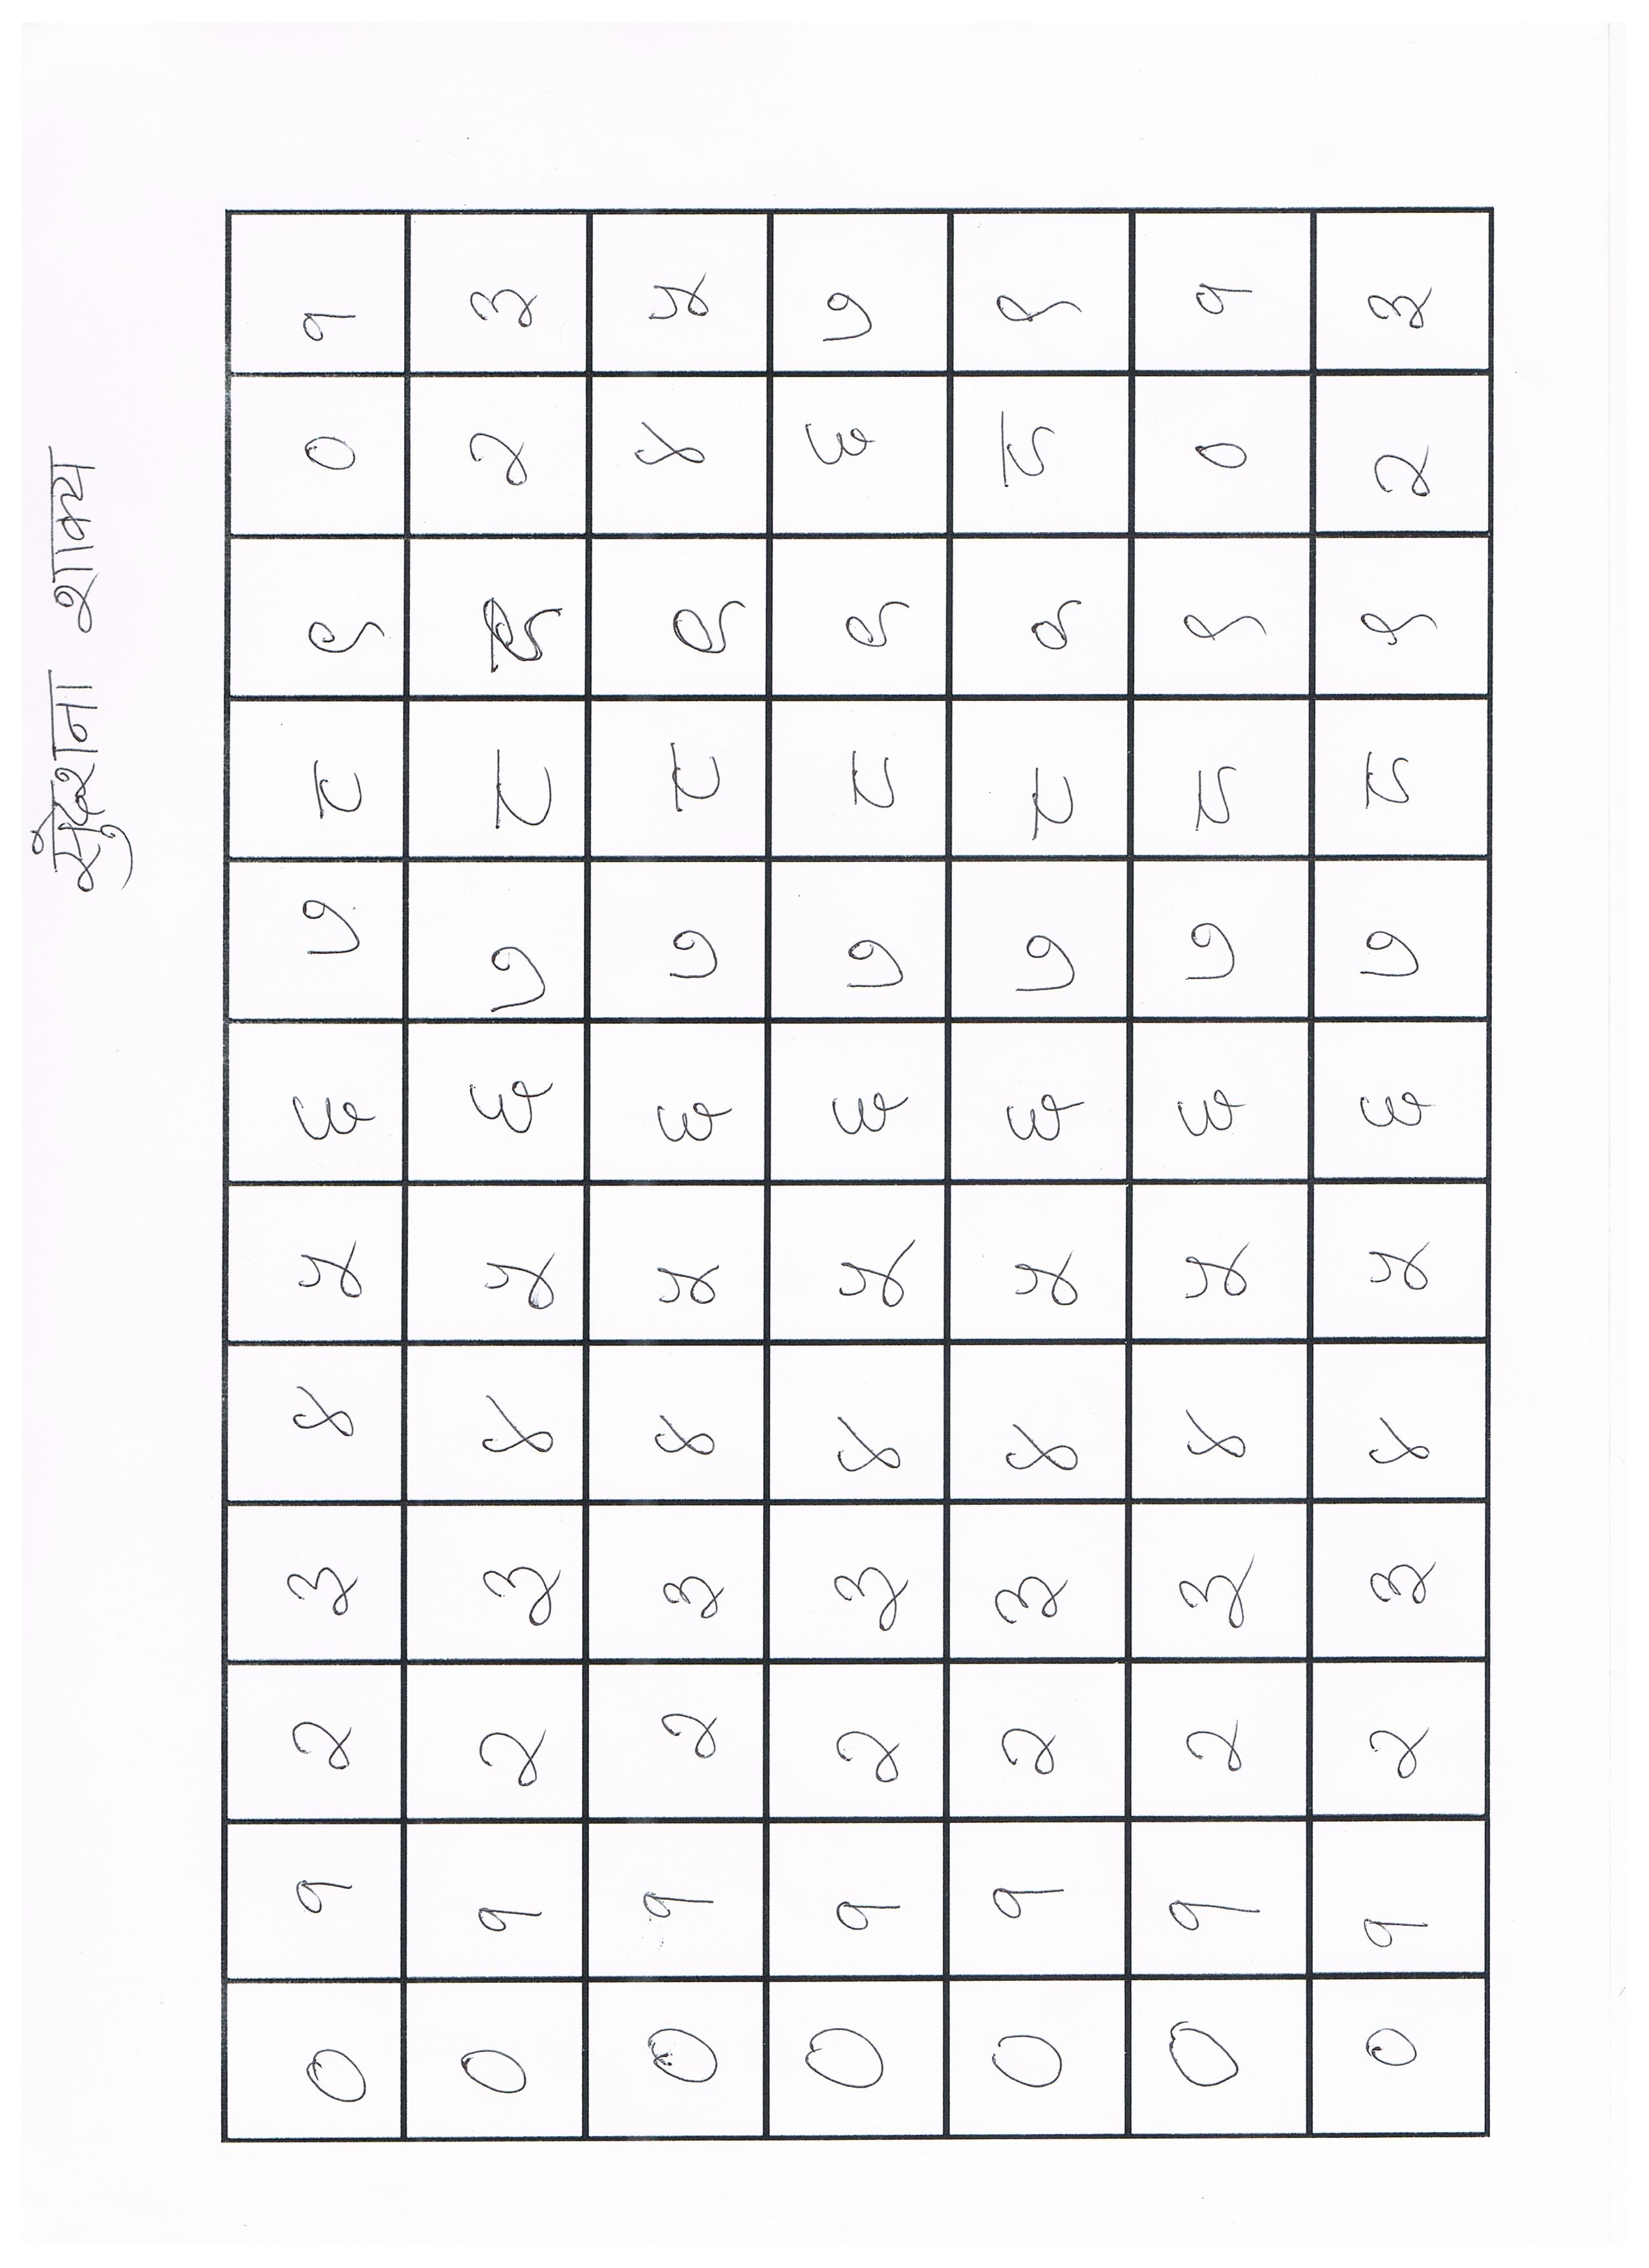 सुर्दशना शाक्य
० १ २ ३ ४ ५ ६ ७ ८ ९ ० १
० १ २ ३ ४ ५ ६ ७ ८ ९ २ ३
० १ २ ३ ४ ५ ६ ७ ८ ९ ४ ५
० १ २ ३ ४ ५ ६ ७ ८ ९ ६ ७
० १ २ ३ ४ ५ ६ ७ ८ ९ ८ ९
० १ २ ३ ४ ५ ६ ७ ८ ९ ० १
० १ २ ३ ४ ५ ६ ७ ८ ९ २ ३